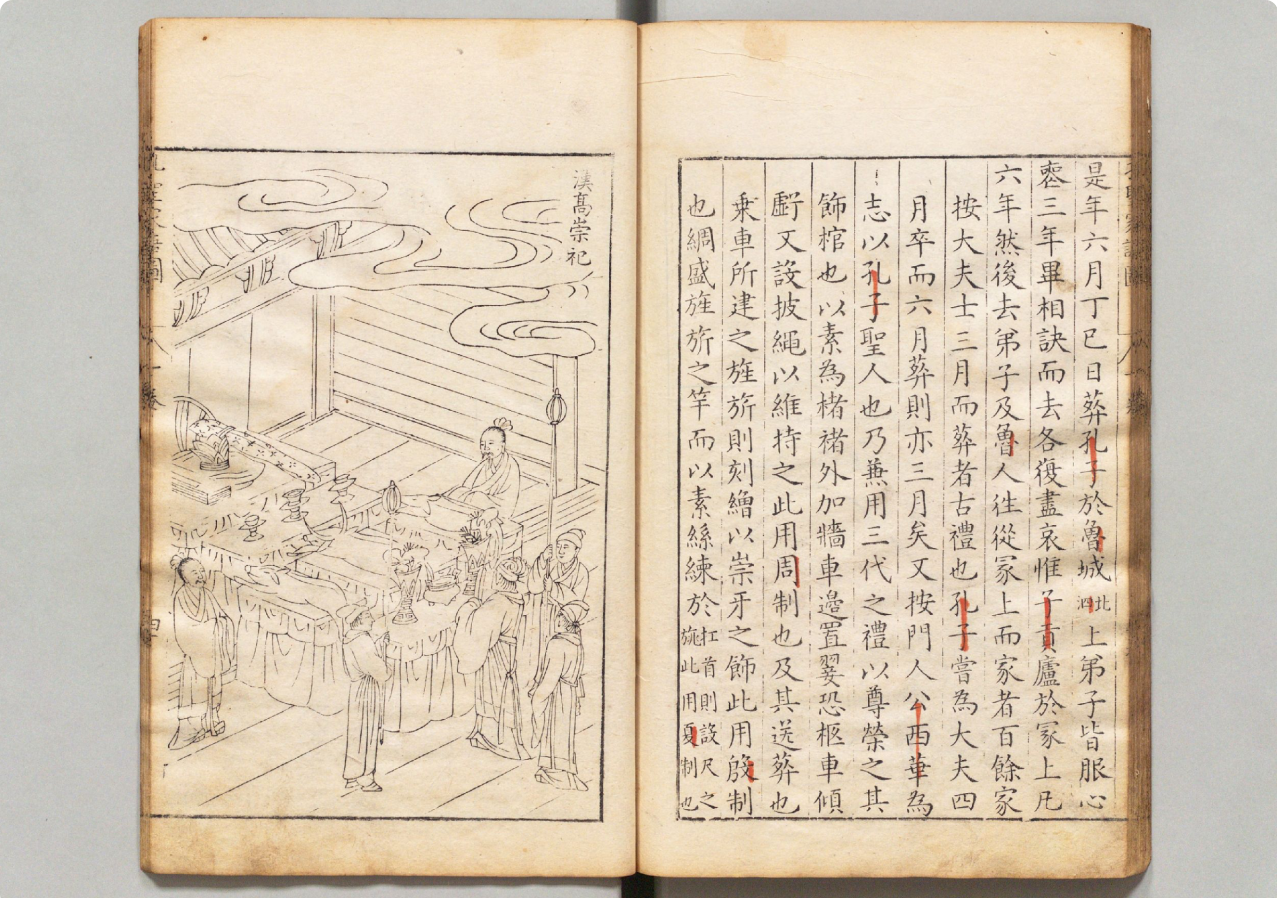 是年六月丁巳日葬孔子於魯城北泗上弟子皆服心
喪三年畢相訣而去各復盡哀惟子貢廬於冢上凡
六年然後去弟子及魯人徃從冢上而家者百餘家
按大夫士三月而葬者古禮也孔子嘗為大夫四
月卒而六月葬則亦三月矣又按門人公西華為
志以孔子聖人也乃兼用三代之禮以尊榮之其
飾棺也以素為楮褚外加牆車邉置翣恐柩車傾
虧又設披繩以維持之此用周制也及其送葬也
乗車所建之旌旂則刻繒以崇牙之飾此用殷制
也綢盛旌旂之竿而以素絲練於杠首則設尺之旐此用夏制也
漢高崇祀